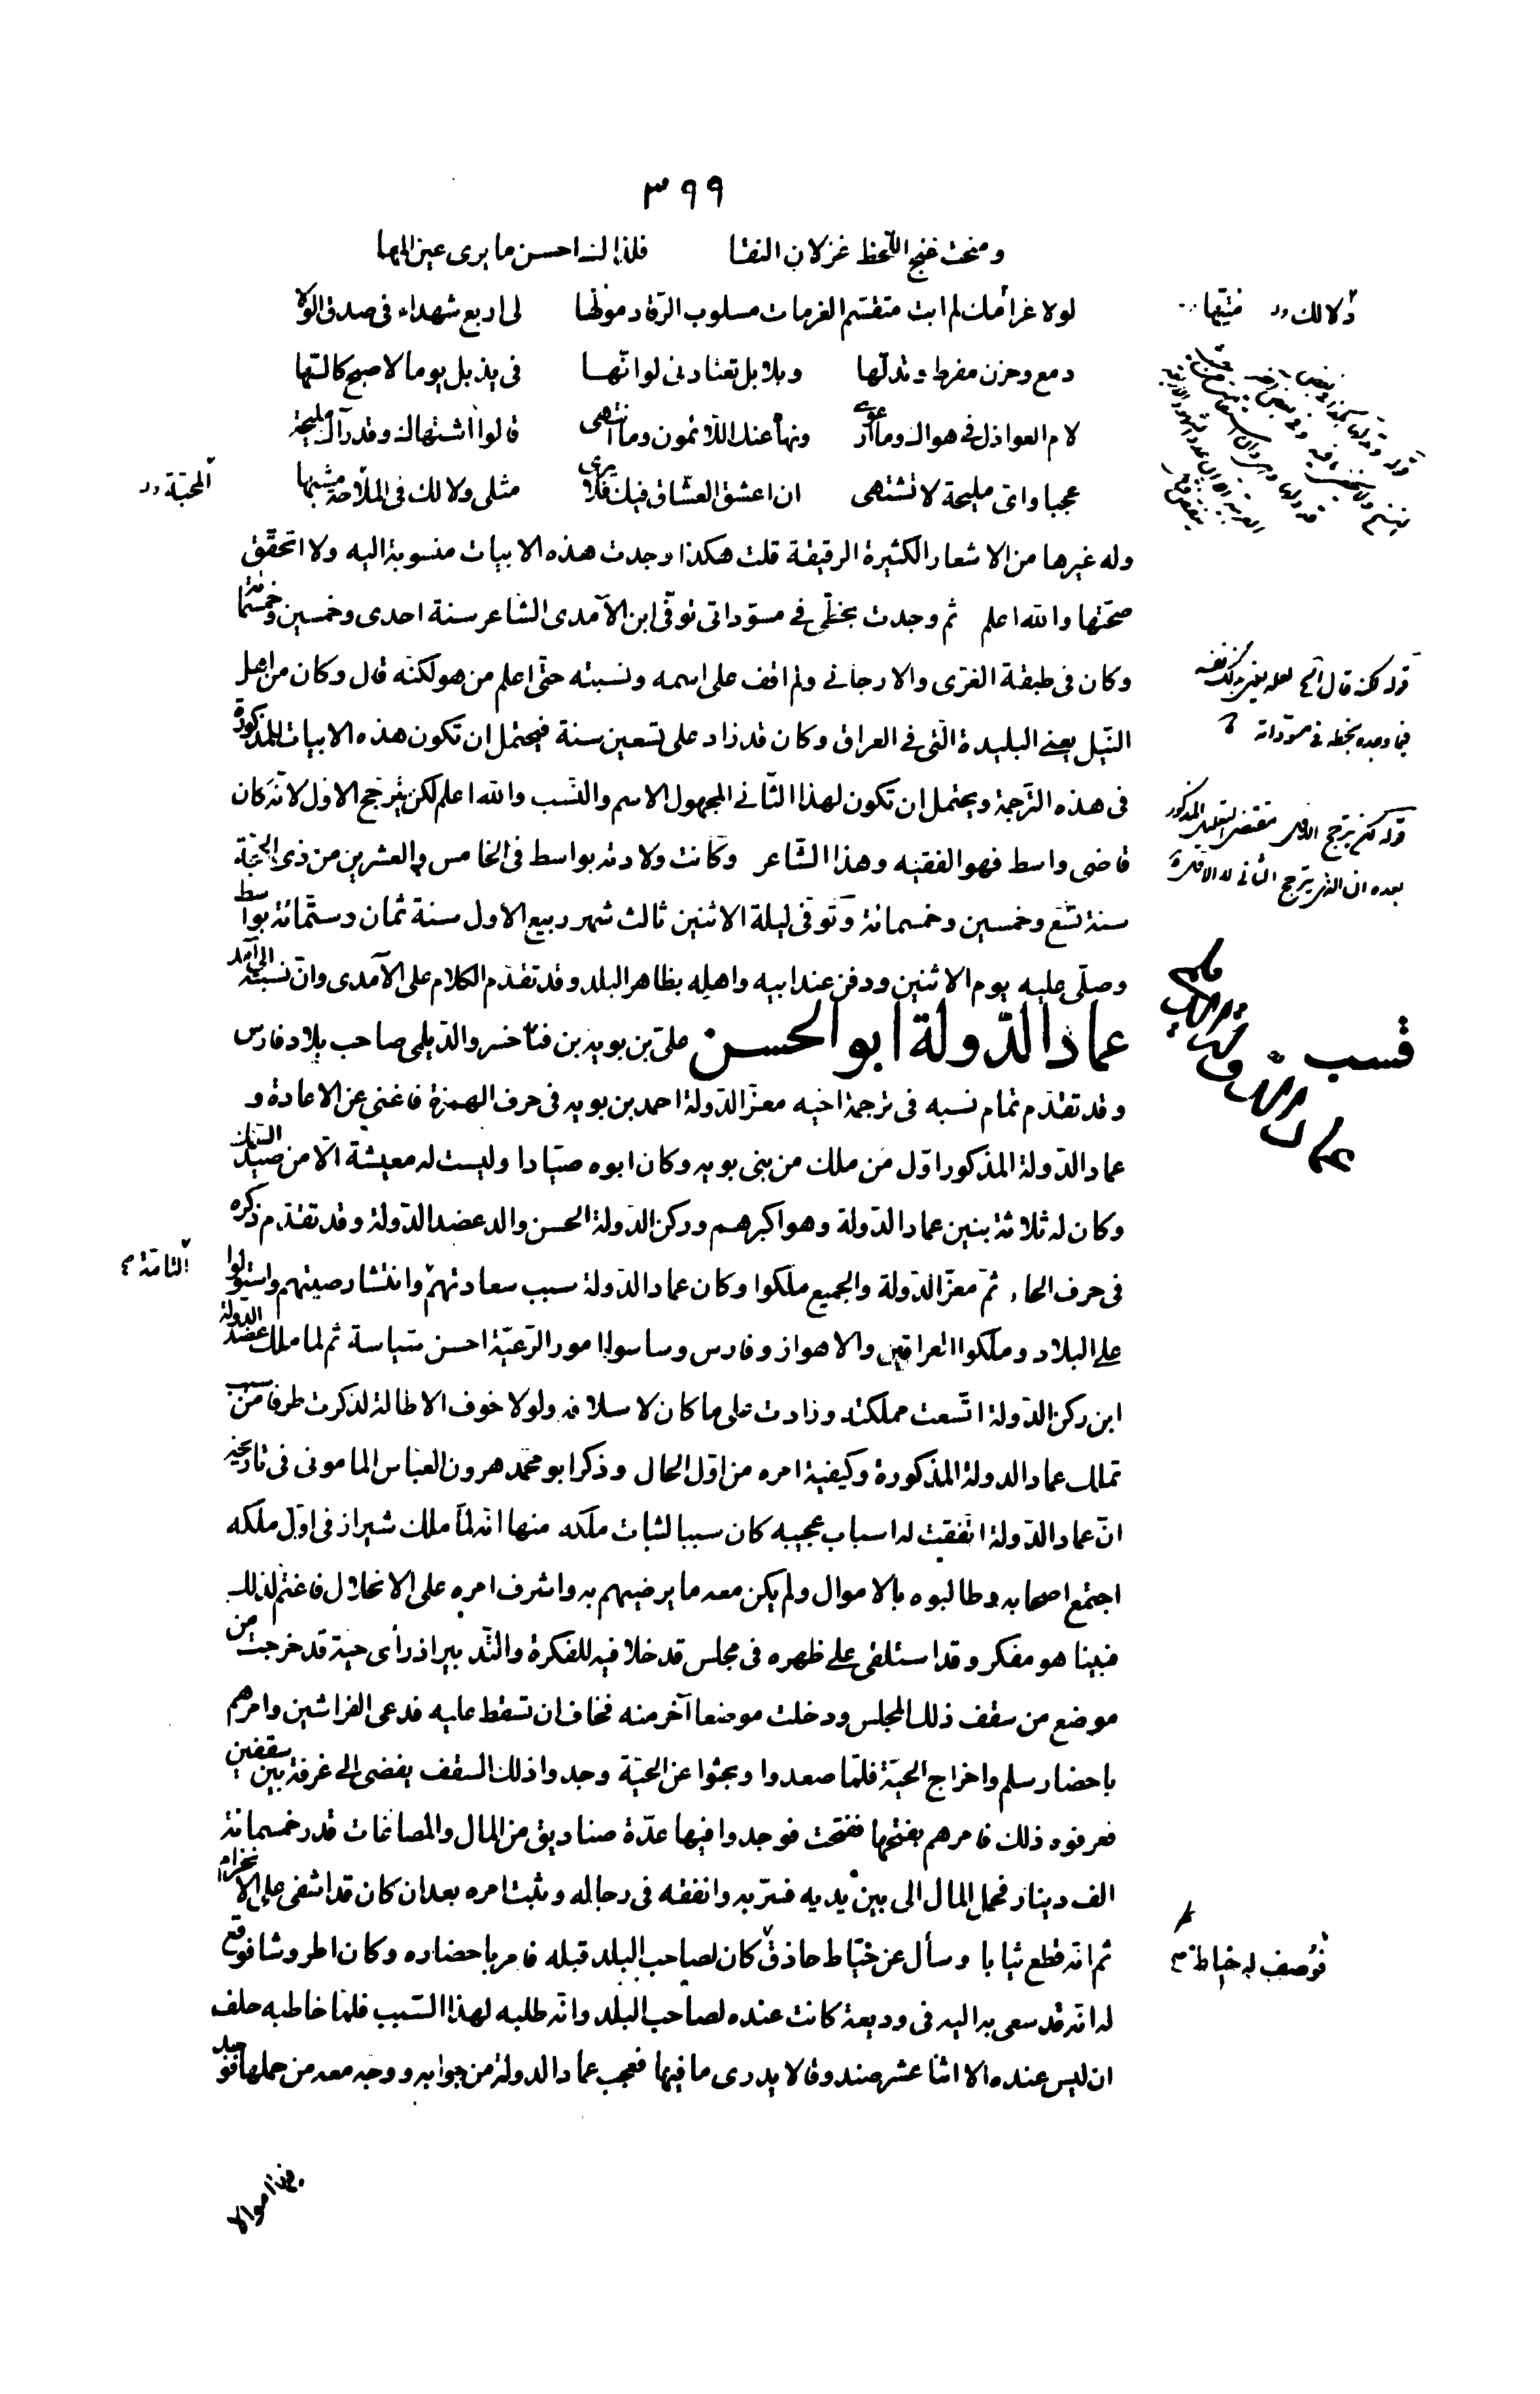 ٣٩٩
ومنحت غنج اللّحظ غزلان النقا فلذالك احسن ما يرى عين المها
لولا غرامك لم ابت متقسّم العزمات مسلوب الرّقاد مولّها لى اربع شهداء فى صدق الولا
دمع وحزن مفرط وتدلّها وبلابل تعتادنى لو انّها فى يذبل يوما لاصبح كالسّها
لام العواذل فى هواك وما ارعوى ونهاْ عنك اللّائمون وما انتهى قالوا اشتهاك وقد رآك مليحة
عجبا واىّ مليحة لا تشتهى ان اعشق العشاق فيك فلا يرى مثلى ولا لك فى الملاحة مشبها
وله غيرها من الاشعار الكثيرة الرقيقة قلت هكذا وجدت هذه الابيات منسوبة اليه ولا اتحقّق
صحّتها والله اعلم ثم وجدت بخطّى فى مسوّداتى توفّى ابن الآمدى الشاعر سنة احدى وخمسين وخمسمائة
وكان فى طبقة الغزى والارجانى ولم اقف على اسمه ونسبته حتّى اعلم من هو لكنّه قال وكان من اهل
النّيل يعنى البليدة الّتى فى العراق وكان قد زاد على تسعين سنة فيحتمل ان تكون هذه الابيات المذكورة
فى هذه التّرجمة ويحتمل ان تكون لهذا الثّانى المجهول الاسم والنّسب والله اعلم لكن يترجّح الاوّل لانّه كان
قاضى واسط فهو الفقيه وهذا الشّاعر وكانت ولادته بواسط فى الخامس والعشرين من ذى الحجّة
سنة تسع وخمسين وخمسمائة وتوفّى ليلة الاثنين ثالث شهر ربيع الاول سنة ثمان وستّمائة بواسط
وصلّى عليه يوم الاثنين ودفن عند ابيه واهله بظاهر البلد وقد تقدّم الكلام على الآمدى وانّ نسبته الى آمد
عماد الدّولة ابو الحسن علىّ بن بويه بن فنّاخسرو الدّيلمى صاحب بلاد فارس
وقد تقدّم تمام نسبه فى ترجمة اخيه معزّ الدّولة احمد بن بويه فى حرف الهمزة فاغنى عن الاعادة و
عماد الدّولة المذكور اوّل من ملك من بنى بويه وكان ابوه صيّادا وليست له معيشة الّا من صيد السّمك
وكان له ثلاثة بنين عماد الدّولة وهو اكبرهم وركن الدّولة الحسن والد عضد الدّولة وقد تقدّم ذكره
فى حرف الحاء ثمّ معزّ الدّولة والجميع ملكوا وكان عماد الدّولة سبب سعادتهم وانتشار صيتهم واستولوا
على البلاد وملكوا العراقين والاهواز وفارس وساسوا امور الرّعيّة احسن سياسة ثم لما ملك عضد الدّولة
ابن ركن الدّولة اتّسعت مملكته وزادت على ما كان لاسلافه ولولا خوف الاطالة لذكرت طرفا من سبب
تملك عماد الدولة المذكورة وكيفية امره من اوّل الحال وذكر ابو محمّد هرون العبّاس المامونى فى تاريخه
انّ عماد الدّولة اتّفقت له اسباب عجيبه كان سببا لثبات ملكه منها انّه لمّا ملك شيراز فى اوّل ملكه
اجتمع اصحابه وطالبوه بالاموال ولم يكن معه ما يرضيهم به واشرف امره على الانحلال فاغتمّ لذلك
فبينا هو مفكر وقد استلقى على ظهره فى مجلس قد خلا فيه للفكرة والتّدبير اذ رأى حيّة قد خرجت من
موضع من سقف ذلك المجلس ودخلت موضعا آخر منه فخاف ان تسقط عليه فدعى الفراشين وامرهم
باحضار سلم واخراج الحيّة فلمّا صعدوا وبحثوا عن الحيّة وجدوا ذلك السقف يفضى الى غرفة بين سقفين
فعرفوه ذلك فامرهم بفتحها ففتحت فوجدوا فيها عدّة صناديق من المال والمصاغات قدر خمسمائة
الف دينار فحمل المال الى بين يديه فسرّ به وانفقه فى رجاله وثبت امره بعد ان كان قد اشفى على الانخرام
ثم انّه قطع ثيابا وسأل عن خيّاط حاذق كان لصاحب البلد قبله فامر باحضاره وكان اطروشا فوقع
له انّه قد سعى به اليه فى وديعة كانت عنده لصاحب البلد وانّه طلبه لهذا السّبب فلمّا خاطبه حلف
ان ليس عنده الا اثنا عشر صندوقا لا يدرى ما فيها فعجب عماد الدولة من جوابه ووجّه معه من حملها فوجد
فيها اموالا
دلالك فتيتها
المحبّة
قوله لكنه قال الخ لعله يعنى بذلك نفسه
فيما وجده بخطه فى مسوّداته
قوله لكن يترجح الاول مقتضى التعليل المذكور
بعده ان الذى يترجح الثانى لا الاول
قسب
عماد الدولة
التامّة
فوُصف له خيّاط